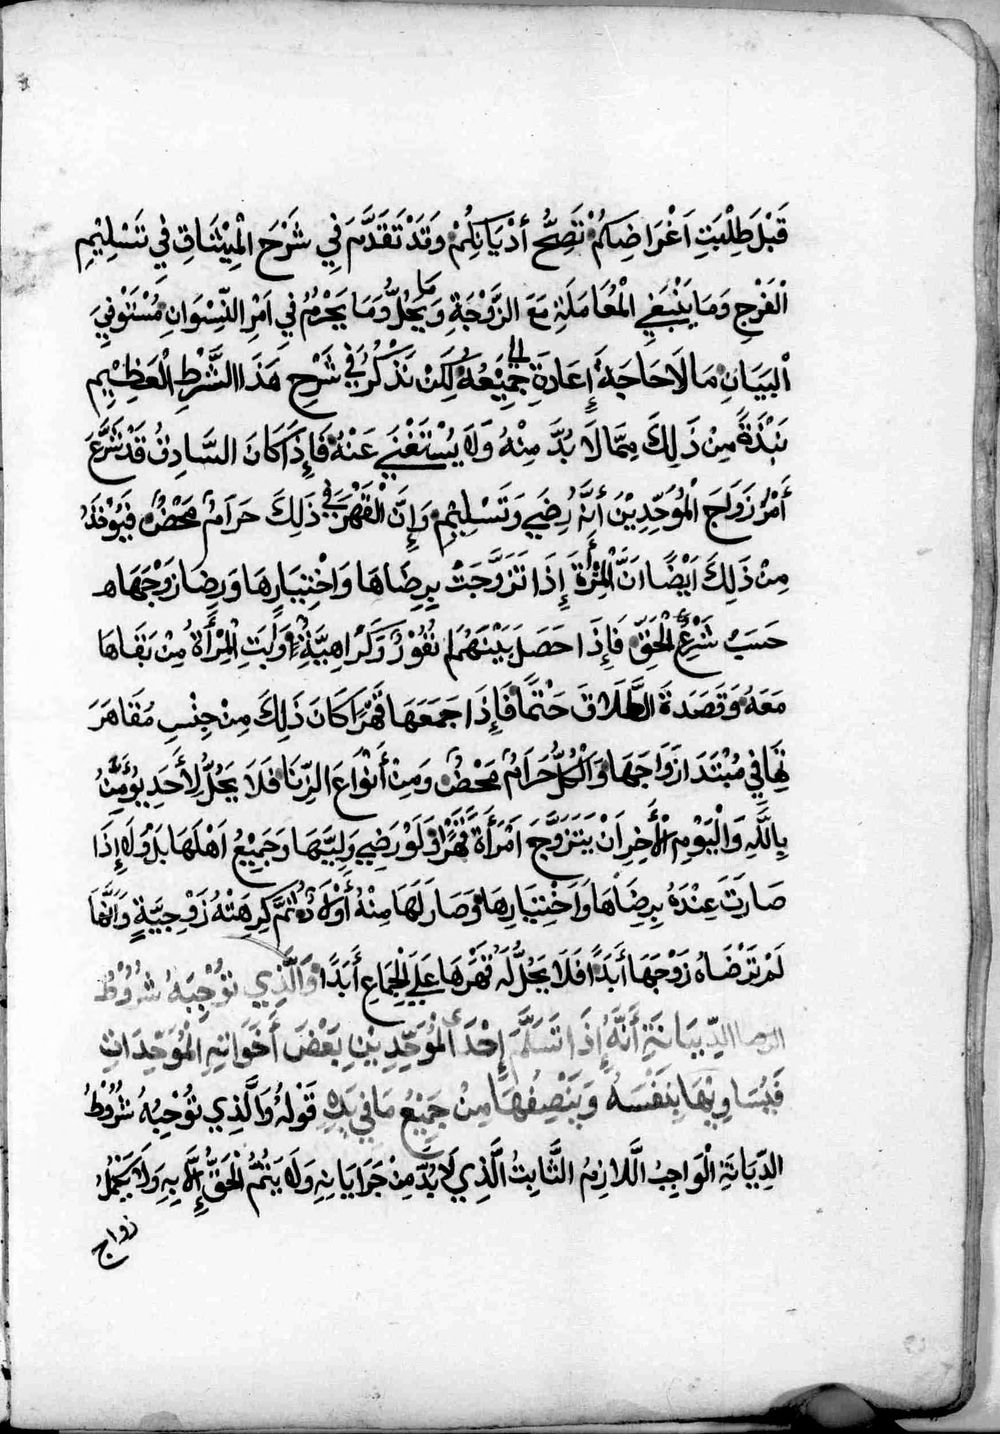 قَبْلَ طِلْبَتِ اَغْرَاضِكُمْ تَصِحُّ أدْيَانِكُمْ وَقَدْ تَقَدَّمَ فِي شَرْحِ الْمِيْثَاقِ فِي تَسْلِيْمِ
الْفَرْجِ وَمَا يَنْبَغِي الْمُعَامَلَةِ مَعَ الزَّوْجَةِ وَمَا يَحُلُّ وَمَا يَحْرُمُ فِي اَمْرِ النِّسْوَانِ مُسْتَوْفِيَ
الْبَيَانِ مَا لَا حَاجَةَ إلى إِعَادَةِ جَمِيْعُهُ لَكِنْ نَذْكُرُ فِي شَرْحِ هَذَا الشَّرْطِ الْعَظِيْمِ
نَبْذَةً مِنْ ذَلِكَ مِمَّا لَا بُدَّ مِنْهُ وَلَا يُسْتَغْنَي عَنْهُ فَإِذَا كَانَ السَّادِقُ قَدْ شَرَّعَ
أَمْرُ زَوَاجَ الْمُوَحِّدِيْنَ أنَّهُ رِضَي وَتَسْلِيْمِ وَإِنَّ الْقَهْرَ فِي ذَلِكَ حَرَامٌ مَحْضٌ فَيُوْخَذُ
مِنْ ذَلِكَ اَيْضًا انَّ الْمَرْأَةَ إِذَا تَزَوَّجَتْ بِرِضَاهَا وَاخْتِيَارِهَا وَرِضَا زَوْجَهَا
حَسَبَ شَرْعِ الْحَقِّ فَإِذَا حَصَلَ بَيْنَهُمَا نُفُوْرٌ وَكَرَاهِيَّةٌ وَأَبَتِ الْمَرْأَةُ مِنْ بَقَاهَا
مَعَهُ وَقَصَدَةَ الطَّلَاقَ حَتْمًا فَإِذَا جَمَعَهَا قَهْرًا كَانَ ذَلِكَ مِنْ جِنْسِ مُقَاهَرَ
تِهَا فِي مُبْتَدَا زَوَاجَهَا وَالْكُلُّ حَرَامٌ مَحْضٌ وَمِنْ أَنْوَاعَ الزِّنَا فَلَا يَحُلُّ لِأَحَدٍ يُؤمِّنُ
بِاللَّهِ وَالْيَوْمِ الْأَخِرِ اَنْ يَتَزَوَّجَ اَمْرَأَةً قَهْرًا وَلَوْ رَضِيَ وَلِيَّهَا وَجَمِيْعُ اَهْلَهَا بَلْ وَلَا إِذَا
صَارَتْ عِنْدَهُ بِرِضَاهَا وَاخْتِيَارِهَا وَصَارَ لَهَا مِنْهُ أَوْلَادٌ ثُمَّ كَرِهَتْهُ زَوْجِيَّةٍ وَانَّهَا
لَمْ تَرْضَاهُ زَوْجَهَا أَبَدًا فَلَا يَحُلُّ لَهُ قَهْرَهَا عَلَي الْجِمَاعِ أَبَدًا وَالَّذِي تُوْجِبَهُ شُرُوْطُ
الرضا الدِّيَانَةِ أَنَّهُ إِذَا تَسَلَّمَ إِحْدَى الْمُوَحِّدِيْنَ بِعْضَ أَخَوَاتِهِ الْمُوَحِّدَاتِ
فَيُسَاوِيْهَا بِنَفْسَهُ وَيَنْصِفُهَا مِنْ جَمِيْعُ مَا فِي يَدِهِ قَوْلَهُ وَالَّذِي تُوْجِبُهُ شُرُوْطُ
الدِّيَانَةِ الْوَاجِبُ اللَّازِمُ الثَّابِتُ الَّذِي لَا بُدَّ مِنْ جَرَايَانِهِ وَلَا يَتُمُّ الْحَقُّ إِلَّا بِهِ وَلَا يَكْمُلُ
زواج